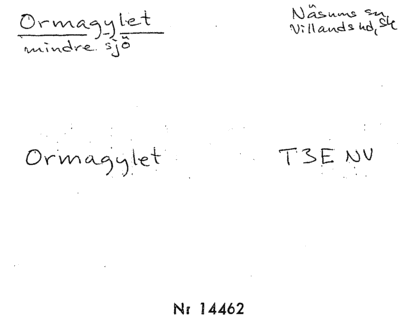 Ormagylet
mindre sjö
Näsums sn
Villands hd, Sk
Ormagylet
T3E NV
Nr 14462